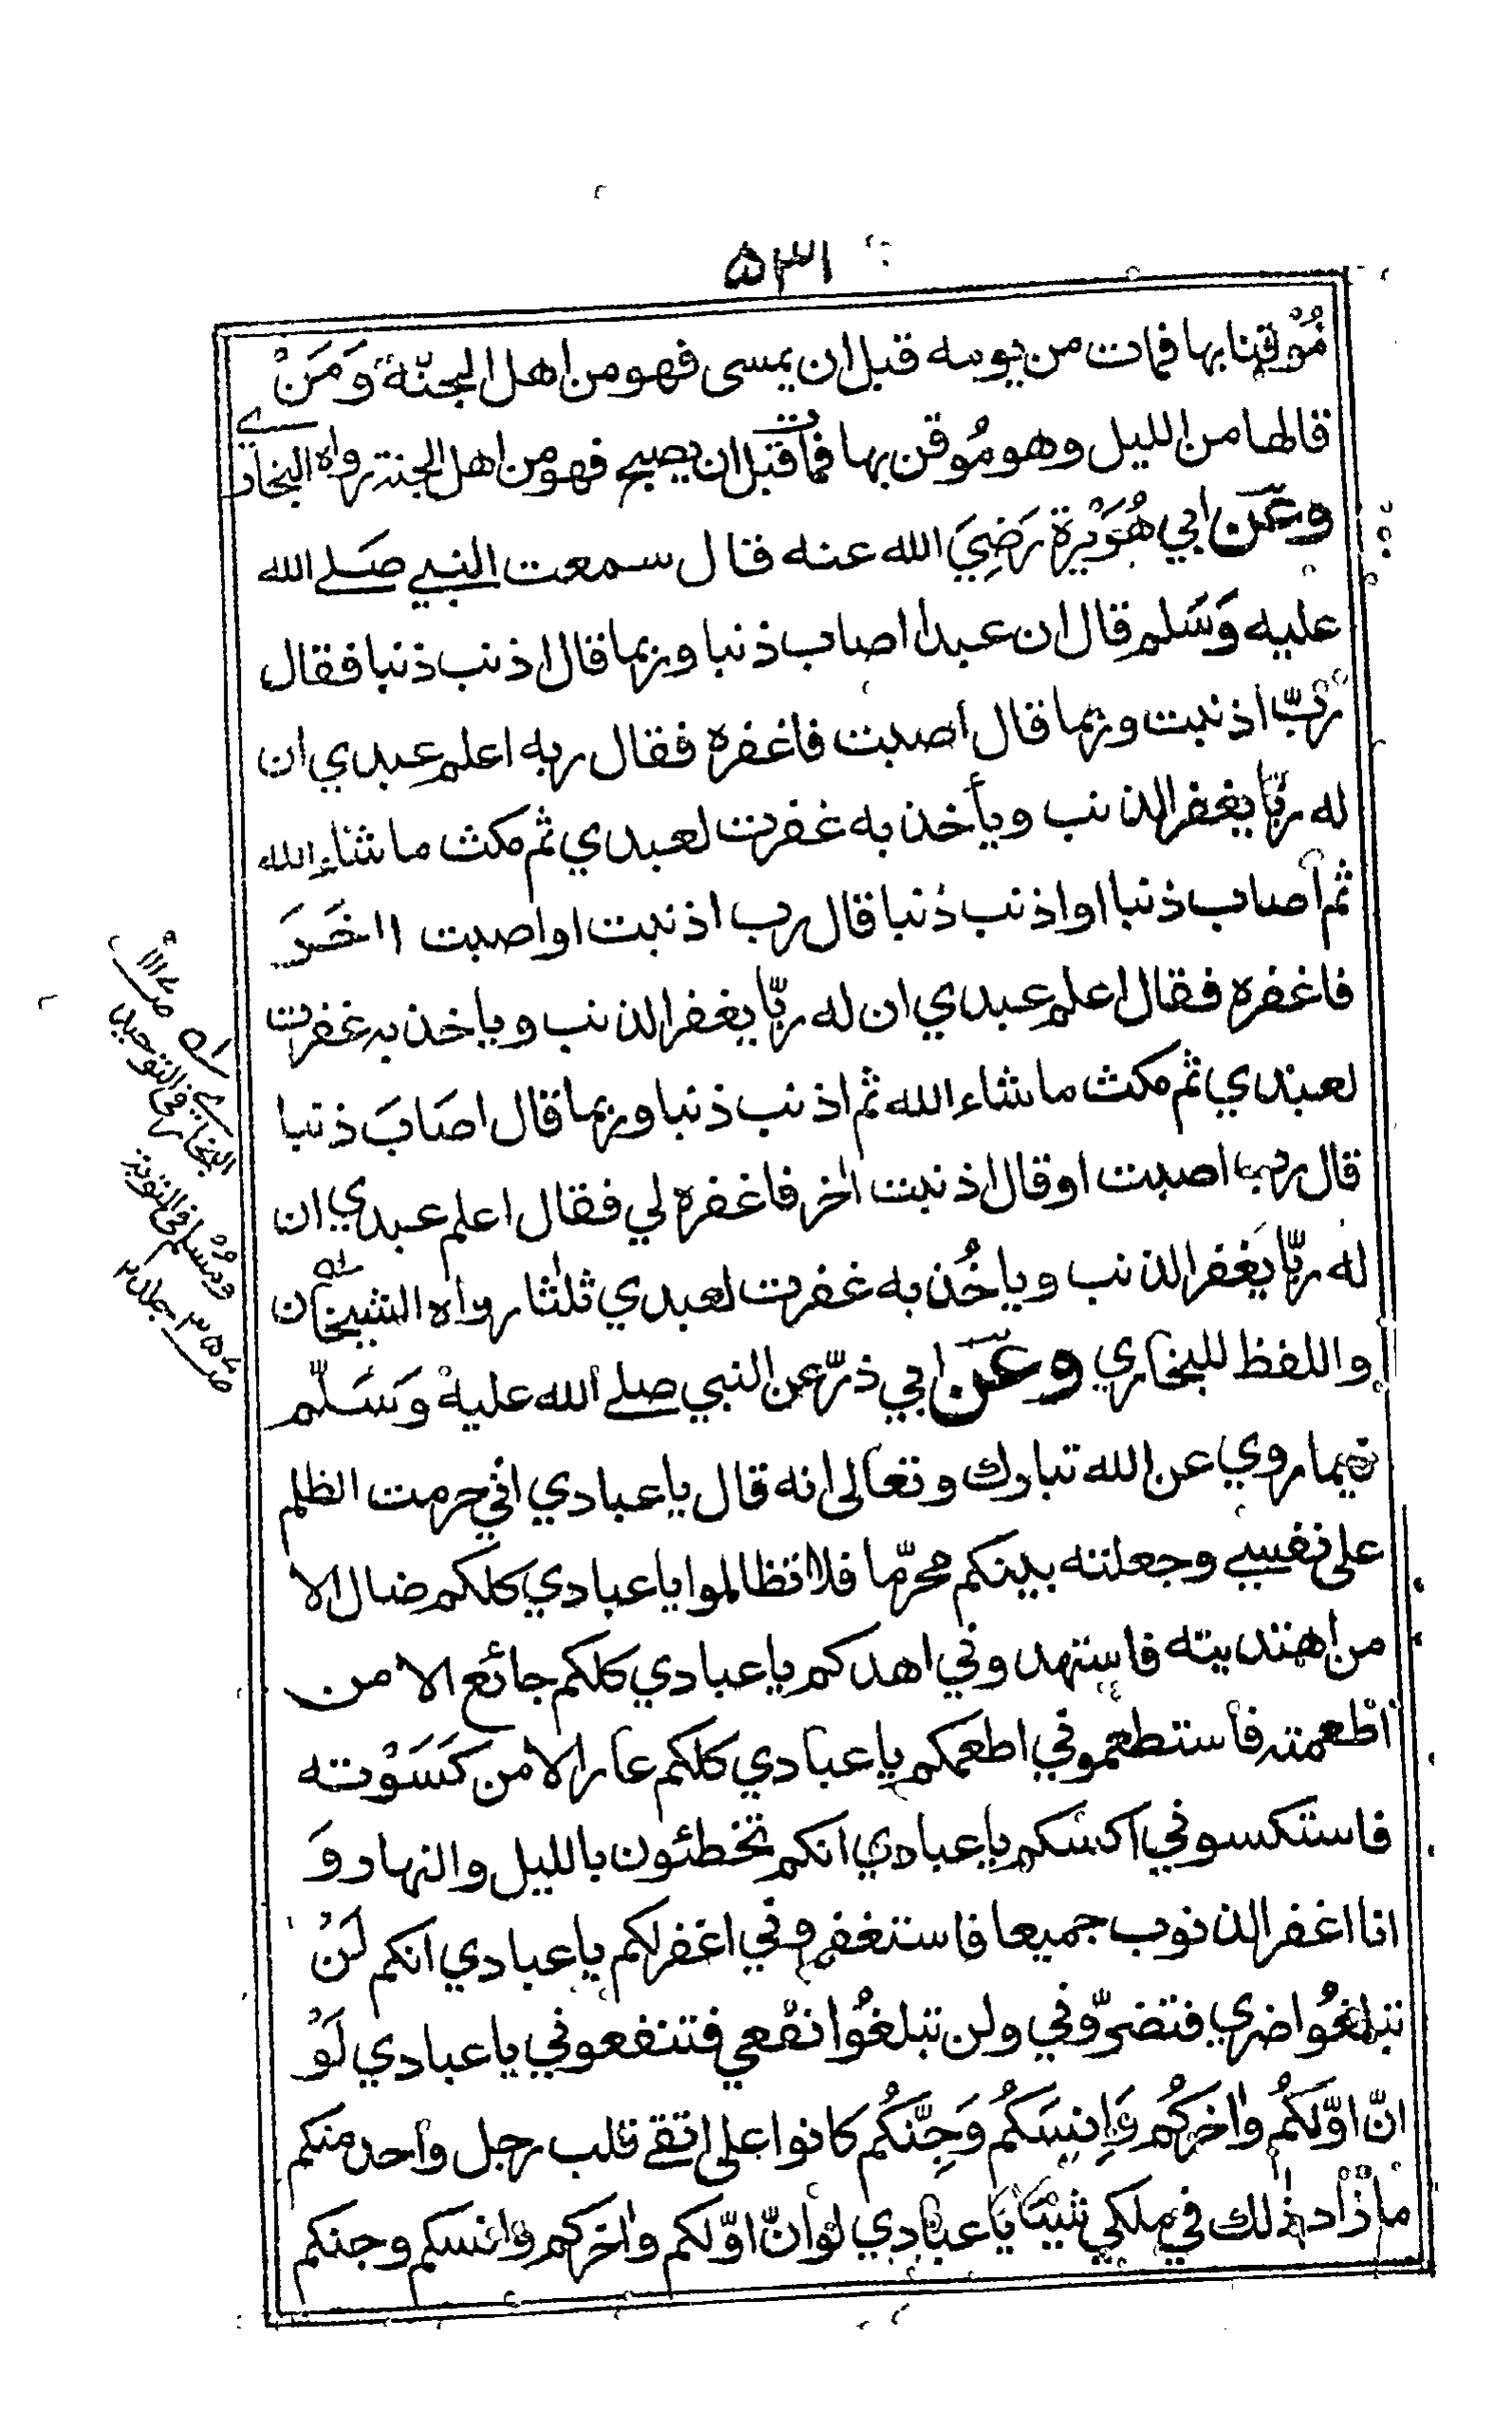 ۵۳۱
مُوْقِنا بها فمات من يومه قبل ان يمسى فهو من اهل الجنّة وَمَنْ
قالها من الليل وهو مُوقن بها فمات قبل ان يصبح فهو من اهل الجنة رواه البخاري
وعَن ابي هُرَيْرة رَضِيَ الله عنه قال سمعت النبي صَلى الله
عليه وَسَلم قال ان عبدا اصاب ذنبا وربما قال اذنب ذنبا فقال
رَبّ اذنبت وربما قال اصبت فاغفره فقال ربه اعلم عبدي ان
له ربّا يغفر الذنب ويأخذ به غفرت لعبدي ثم مكث ما شاء الله
ثم اصاب ذنبا او اذنب ذنبا قال رب اذنبت او اصبت ااخَرَ
فاغفره فقال اعلم عبدي ان له ربّا يغفر الذنب وياخذ به غفرت
لعبدي ثم مكث ما شاء الله ثم اذنب ذنبا وربما قال اصَابَ ذنبا
قال رب اصبت او قال اذنبت اٰخر فاغفره لي فقال اعلم عبدي ان
له ربّا يَغفر الذنب وياخُذ به غفرت لعبدي ثلٰثا رواه الشيخان
واللفظ للبخاري وعَن ابي ذرّ عن النبي صلى الله عليهْ وَسَلّم
فيما روي عن الله تبارك وتعالى انه قال يا عبادي اني حرمت الظلم
على نفسي وجعلته بينكم محرّما فلا تظالموا يا عبادي كلكم ضال الا
من اهتديته فاستهدوني اهدكم يا عبادي كلكم جائع الا من
اطعمته فاستطعموني اطعمكم يا عبادي كلكم عار الا من كَسَوْته
فاستكسوني اكسكم يا عبادي انكم تخطئون بالليل والنهار وَ
انا اغفر الذنوب جميعا فاستغفروني اغفر لكم يا عبادي انكم لَنْ
تبلغُوا ضري فتضرّوني ولن تبلغُوا نفعي فتنفعوني يا عبادي لَوْ
انّ اوّلكُم واٰخركُم وَاِنسَكُم وَجِنَّكُم كانوا على اتقى قلب رجل واحد منكم
ما زاد ذٰلك في ملكي شيئا يَا عبادي لو انّ اوّلكم واٰخركم وانسكم وجنكم
البخاري في التوحيد
ومُسْلم في التوبة
ص۳۵۷ جلد۲